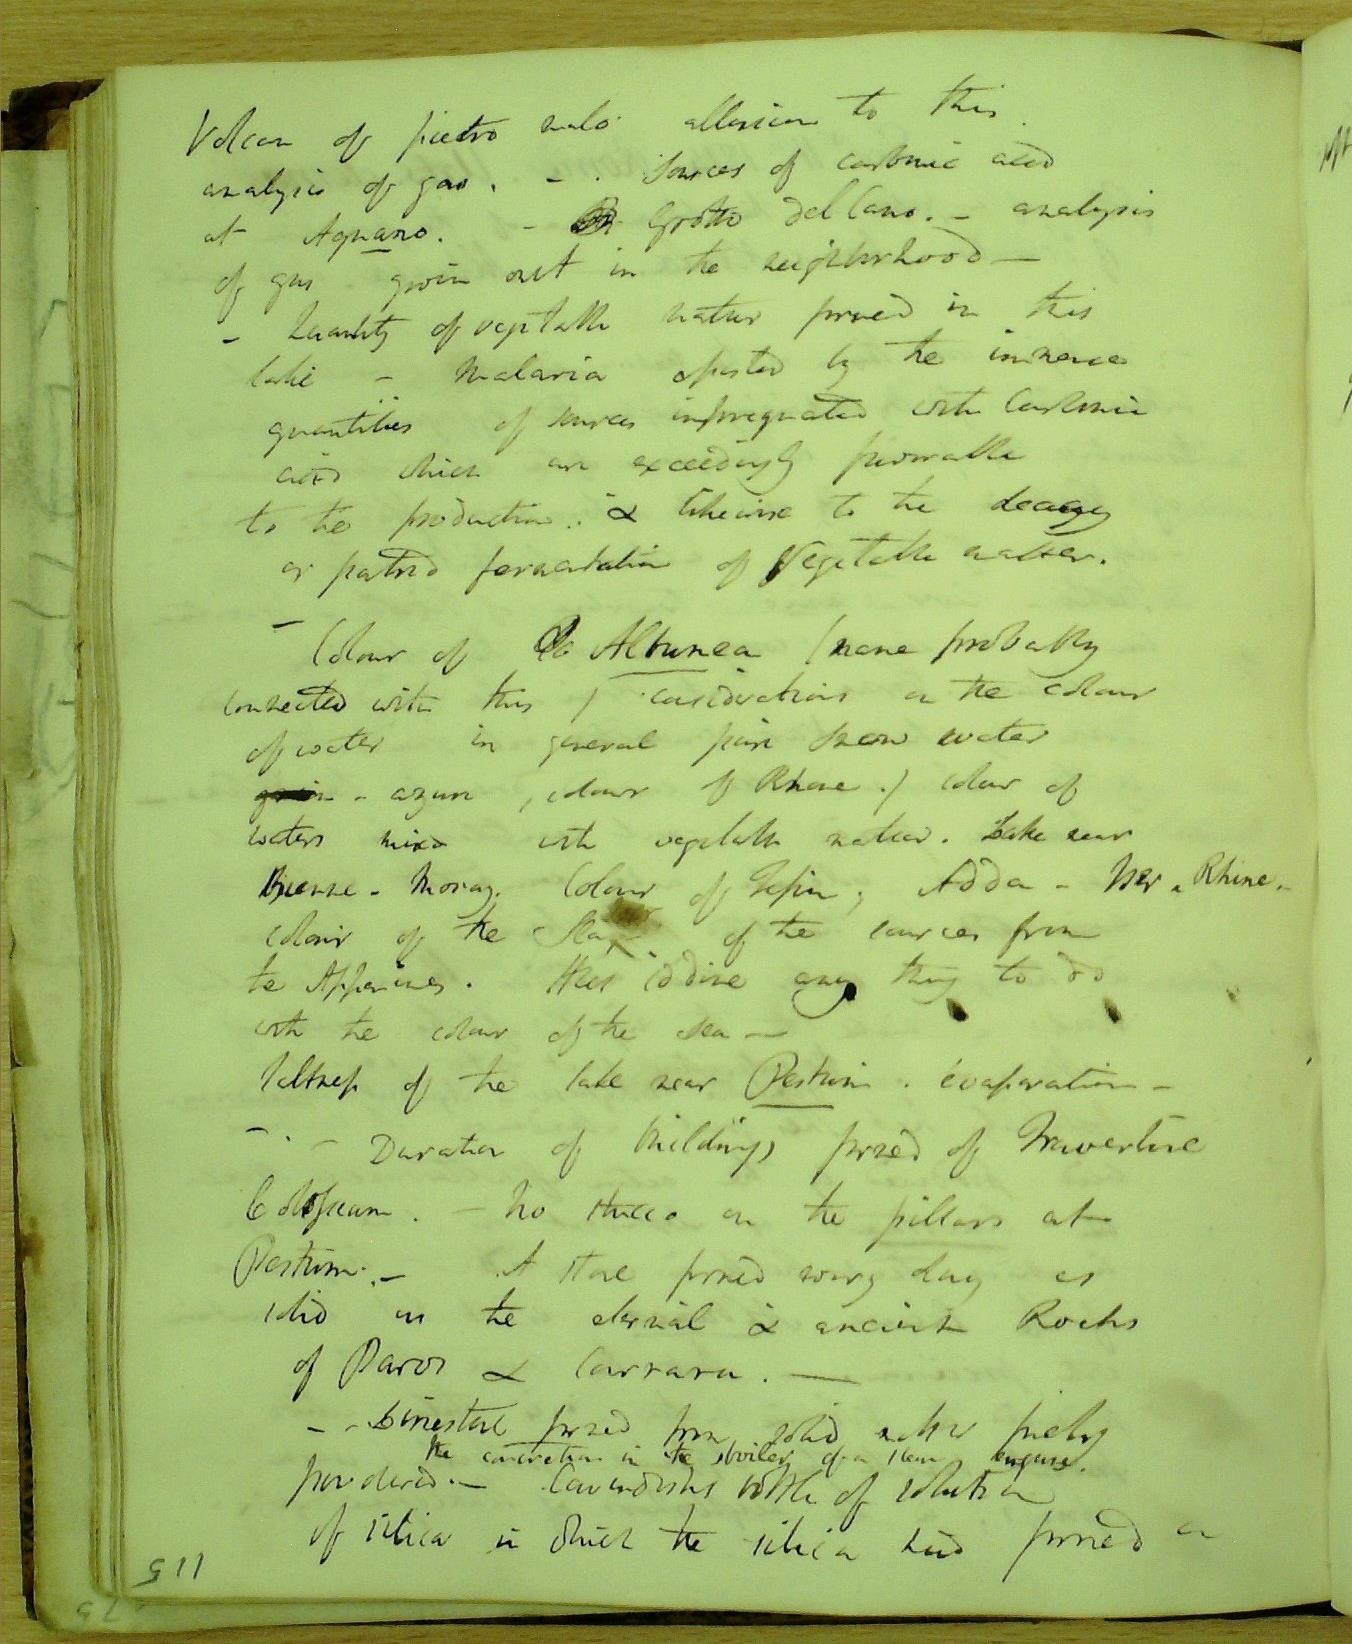 Volcan of pietro malo allusion to this.
analysis of gas. - . Sources of carbonic acid
at Aguano. - Grotto del Cano. - analysis
of gas going out in the neighborhood -
- Quantity of vegetable matter formed in this
lake - Malaria assisted by the immense
quantities of sources impregnated with Carbonic
acid which are exceedingly favorable
to the production. & likewise to the decay
or putrid fermentation of Vegetable matter.
- Colour of La Albunea (name probably
connected with this) considerations on the colour
of water in general pure snow water
- azure, colour of Rhone.) colour of
waters mixed with vegetable matter. Lake near
Bienne - Moray. Colour of Tesin; Adda - Iser - Rhine.
colour of the of the sources from
te Appenines. Has iodine any thing to do
with the colour of the sea -
Saltness of the lake near Pestum. evaporation -
- . - Duration of buildings formed of Travertine
Colosseum. - No stucco on the pillars at
Pestum. - A stone formed every day as
solid as the eternal & ancient Rocks
of Paros & Carrara. -
- - Limestone formed from solid matter finely
the concretion in the boiler of a steam engine.
powdered. - Cavendishs bottle of solution
of silica in which the silica had formed a
115